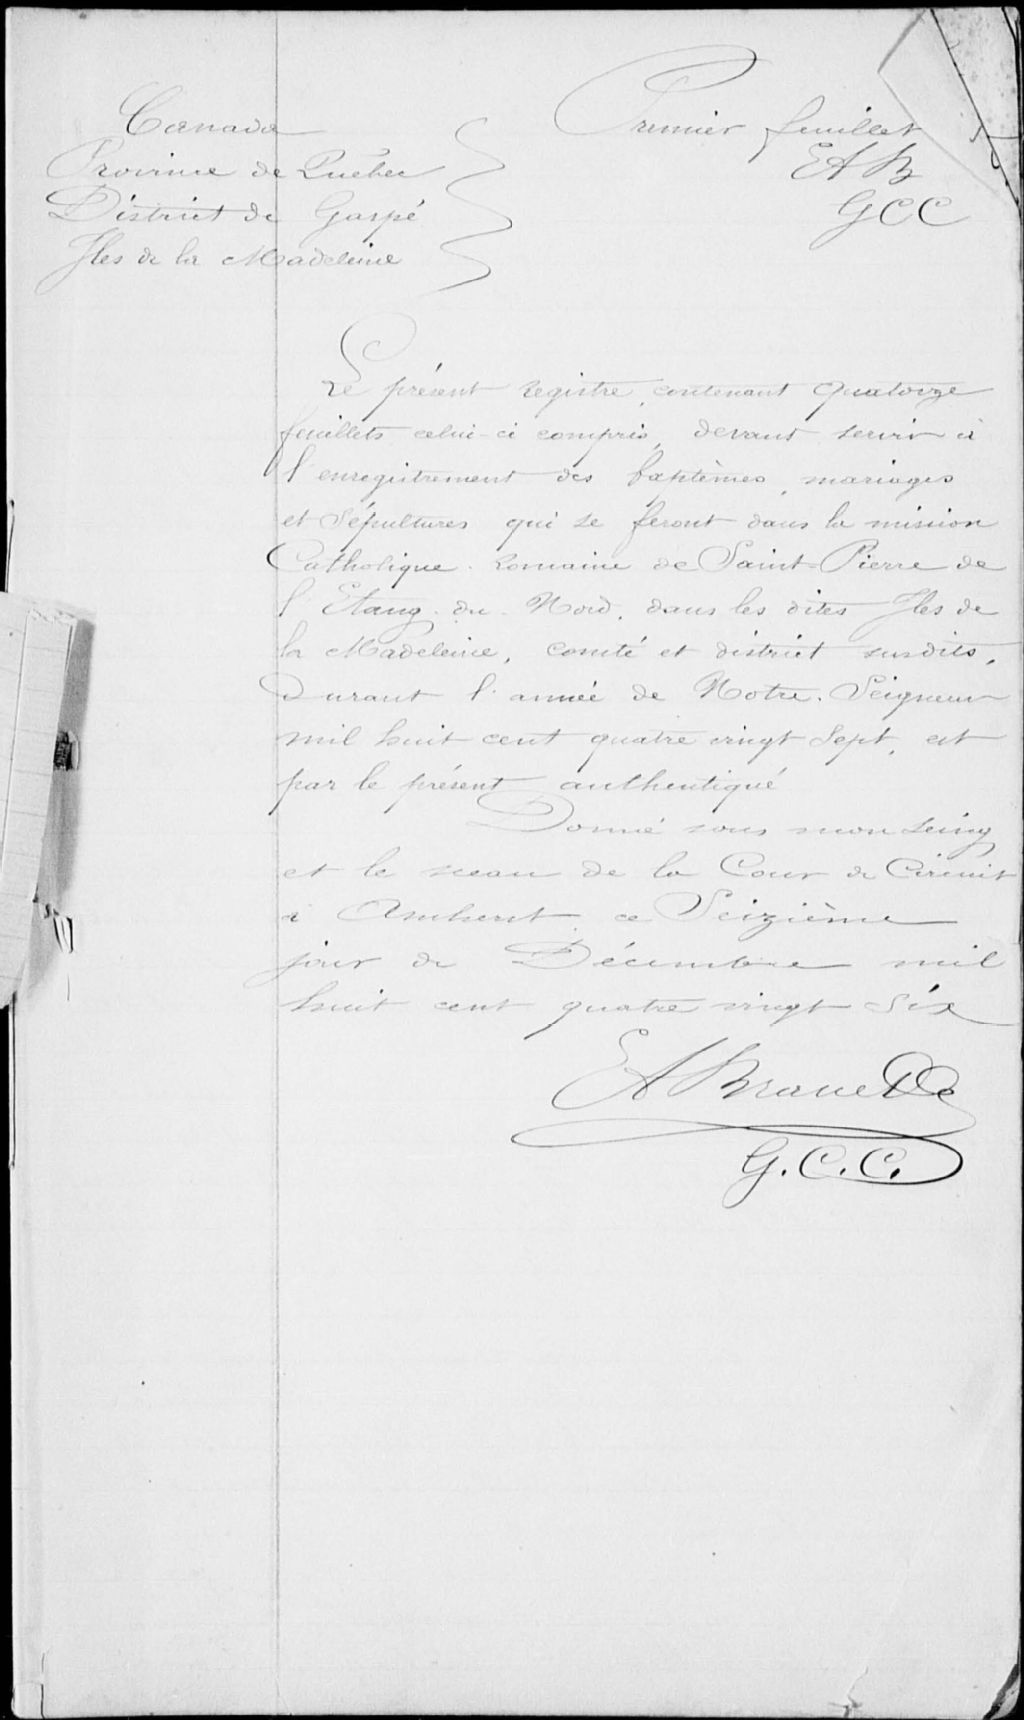 Canada
Province de Québec
District de Gaspé
Iles de la Madeleine
Premier feuillet
EAB
GCC
Le présent registre, contenant quatorze
feuillets celui-ci compris, devant servir à
l'enregistrement des baptêmes, mariages
et sépultures qui se feront dans la mission
Catholique Romaine de Saint-Pierre de
l'Etang du Nord, dans les dites Iles de
la Madeleine, comté et district susdits,
Durant l'année de Notre-Seigneur
mil huit cent quatre vingt Sept, est
par le présent authentiqué
Donné sous mon seing
et le sceau de la Cour de Circuit
à Amherst ce Seizième
jour de Décembre mil
huit cent quatre vingt Six
EA
G.C.C.